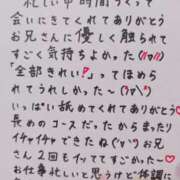 忙しい中時間つくって
会いにきてくれてありがとう
お兄さんに優しく触られて
すごく気持ちよかった(//▽//)
「全部きれい❢」ってほめら
れてうれしかった〜(//▽//)
いっぱい舐めてくれてありがとう♡
長めのコースだったからまったり
イチャイチャできたね(^▽^)お兄
さん2回もイッててすごかった〜♡
お仕事忙しいと思うけど体調に